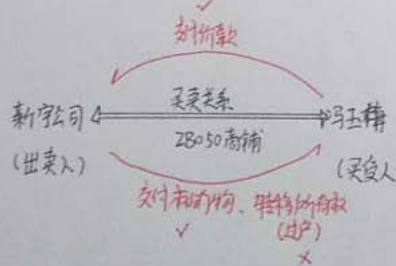 ✓
支付价款
新宇公司
(出卖人)
买卖关系
2B050商铺
冯玉梅
(买受人
交付标的物、转移所有权
(过户)
✓
×